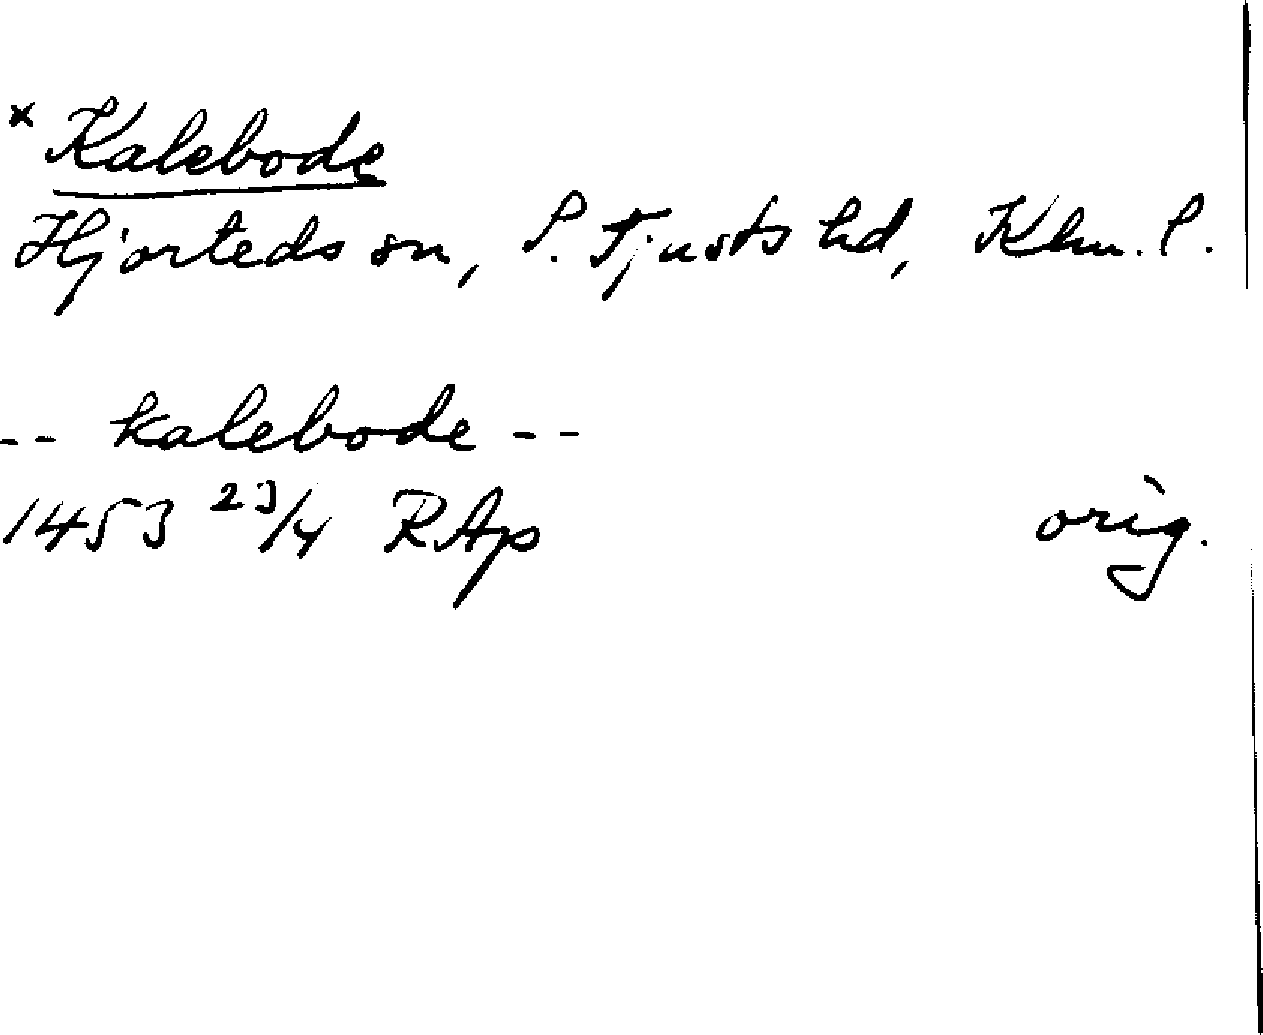 × Kalebode
Hjorteds sn, S. Tjusts hd, Klm. l.
-- kalebode --
1453 23/4 RAp orig.